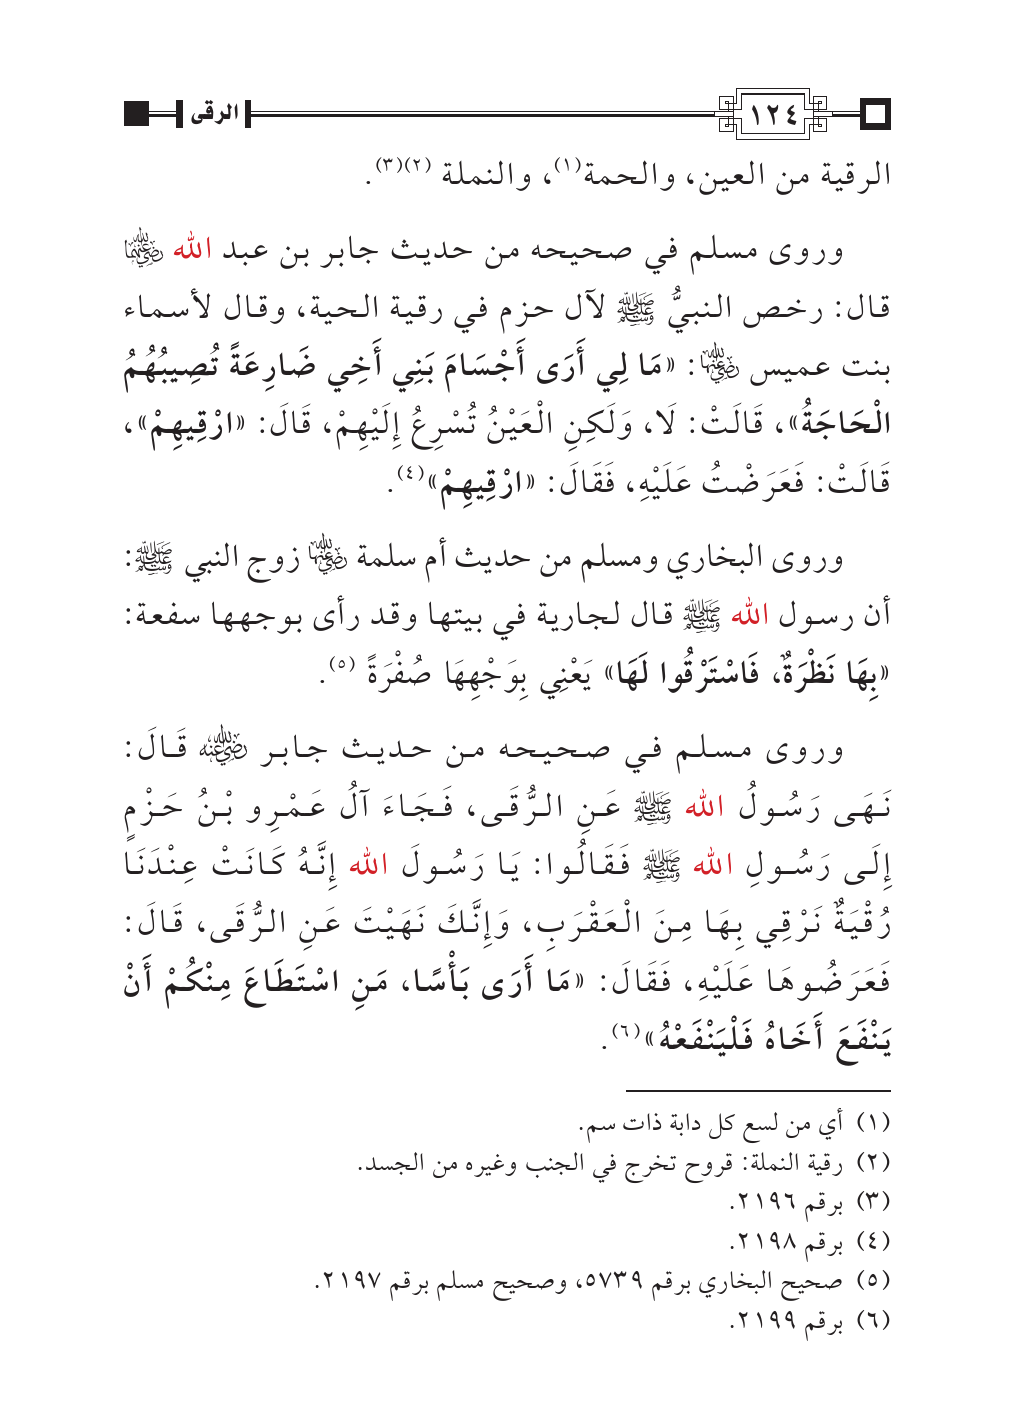 ١٢٤
الرقى
الرقية من العين، والحمة(١)، والنملة (٢)(٣).
وروى مسلم في صحيحه من حديث جابر بن عبد الله رضي الله عنهما
قال: رخص النبيُّ ﷺ لآل حزم في رقية الحية، وقال لأسماء
بنت عميس رضي الله عنها: «مَا لِي أَرَى أَجْسَامَ بَنِي أَخِي ضَارِعَةً تُصِيبُهُمُ
الْحَاجَةُ»، قَالَتْ: لَا، وَلَكِنِ الْعَيْنُ تُسْرِعُ إِلَيْهِمْ، قَالَ: «ارْقِيهِمْ»،
قَالَتْ: فَعَرَضْتُ عَلَيْهِ، فَقَالَ: «ارْقِيهِمْ»(٤).
وروى البخاري ومسلم من حديث أم سلمة رضي الله عنها زوج النبي ﷺ:
أن رسول الله ﷺ قال لجارية في بيتها وقد رأى بوجهها سفعة:
«بِهَا نَظْرَةٌ، فَاسْتَرْقُوا لَهَا» يَعْنِي بِوَجْهِهَا صُفْرَةً (٥).
وروى مسلم في صحيحه من حديث جابر رضي الله عنه قَالَ:
نَهَى رَسُولُ الله ﷺ عَنِ الرُّقَى، فَجَاءَ آلُ عَمْرِو بْنُ حَزْمٍ
إِلَى رَسُولِ الله ﷺ فَقَالُوا: يَا رَسُولَ الله إِنَّهُ كَانَتْ عِنْدَنَا
رُقْيَةٌ نَرْقِي بِهَا مِنَ الْعَقْرَبِ، وَإِنَّكَ نَهَيْتَ عَنِ الرُّقَى، قَالَ:
فَعَرَضُوهَا عَلَيْهِ، فَقَالَ: «مَا أَرَى بَأْسًا، مَنِ اسْتَطَاعَ مِنْكُمْ أَنْ
يَنْفَعَ أَخَاهُ فَلْيَنْفَعْهُ»(٦).
(١) أي من لسع كل دابة ذات سم.
(٢) رقية النملة: قروح تخرج في الجنب وغيره من الجسد.
(٣) برقم ٢١٩٦.
(٤) برقم ٢١٩٨.
(٥) صحيح البخاري برقم ٥٧٣٩، وصحيح مسلم برقم ٢١٩٧.
(٦) برقم ٢١٩٩.